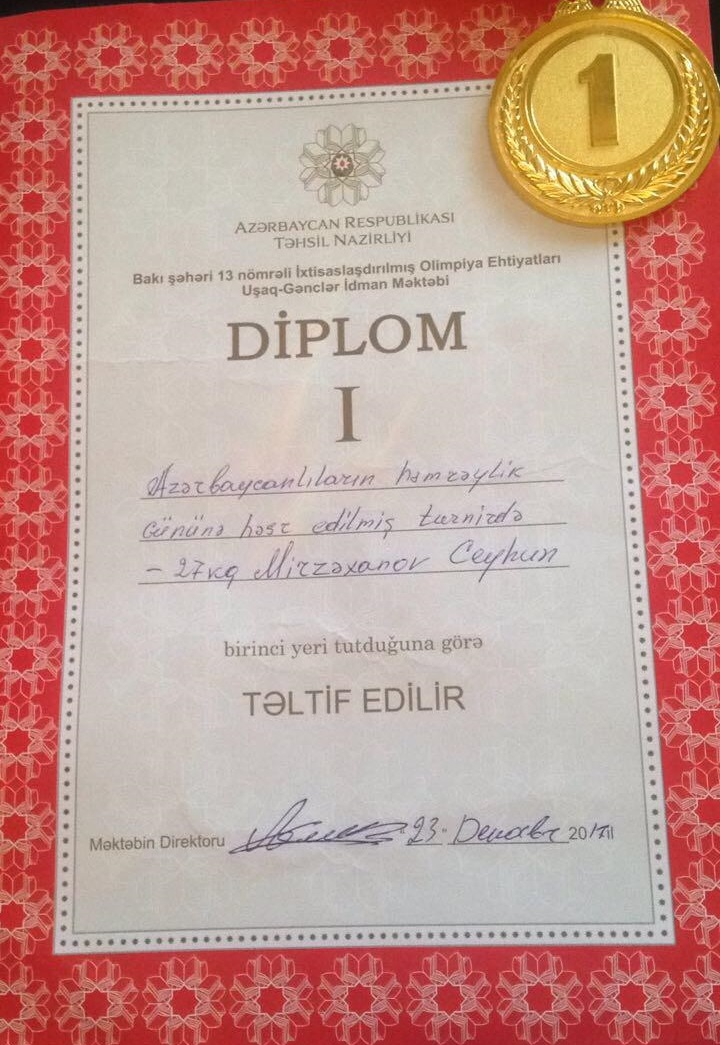 1
AZƏRBAYCAN RESPUBLİKASI
TƏHSİL NAZİRLİYİ
Bakı şəhəri 13 nömrəli İxtisaslaşdırılmış Olimpiya Ehtiyatları
Uşaq-Gənclər İdman Məktəbi
DİPLOM
I
Azərbaycanlıların həmrəylik
Gününə həsr edilmiş turnirdə
- 27kq Mirzəxanov Ceyhun
birinci yeri tutduğuna görə
TƏLTİF EDİLİR
Məktəbin Direktoru 23 Декабр 2017il